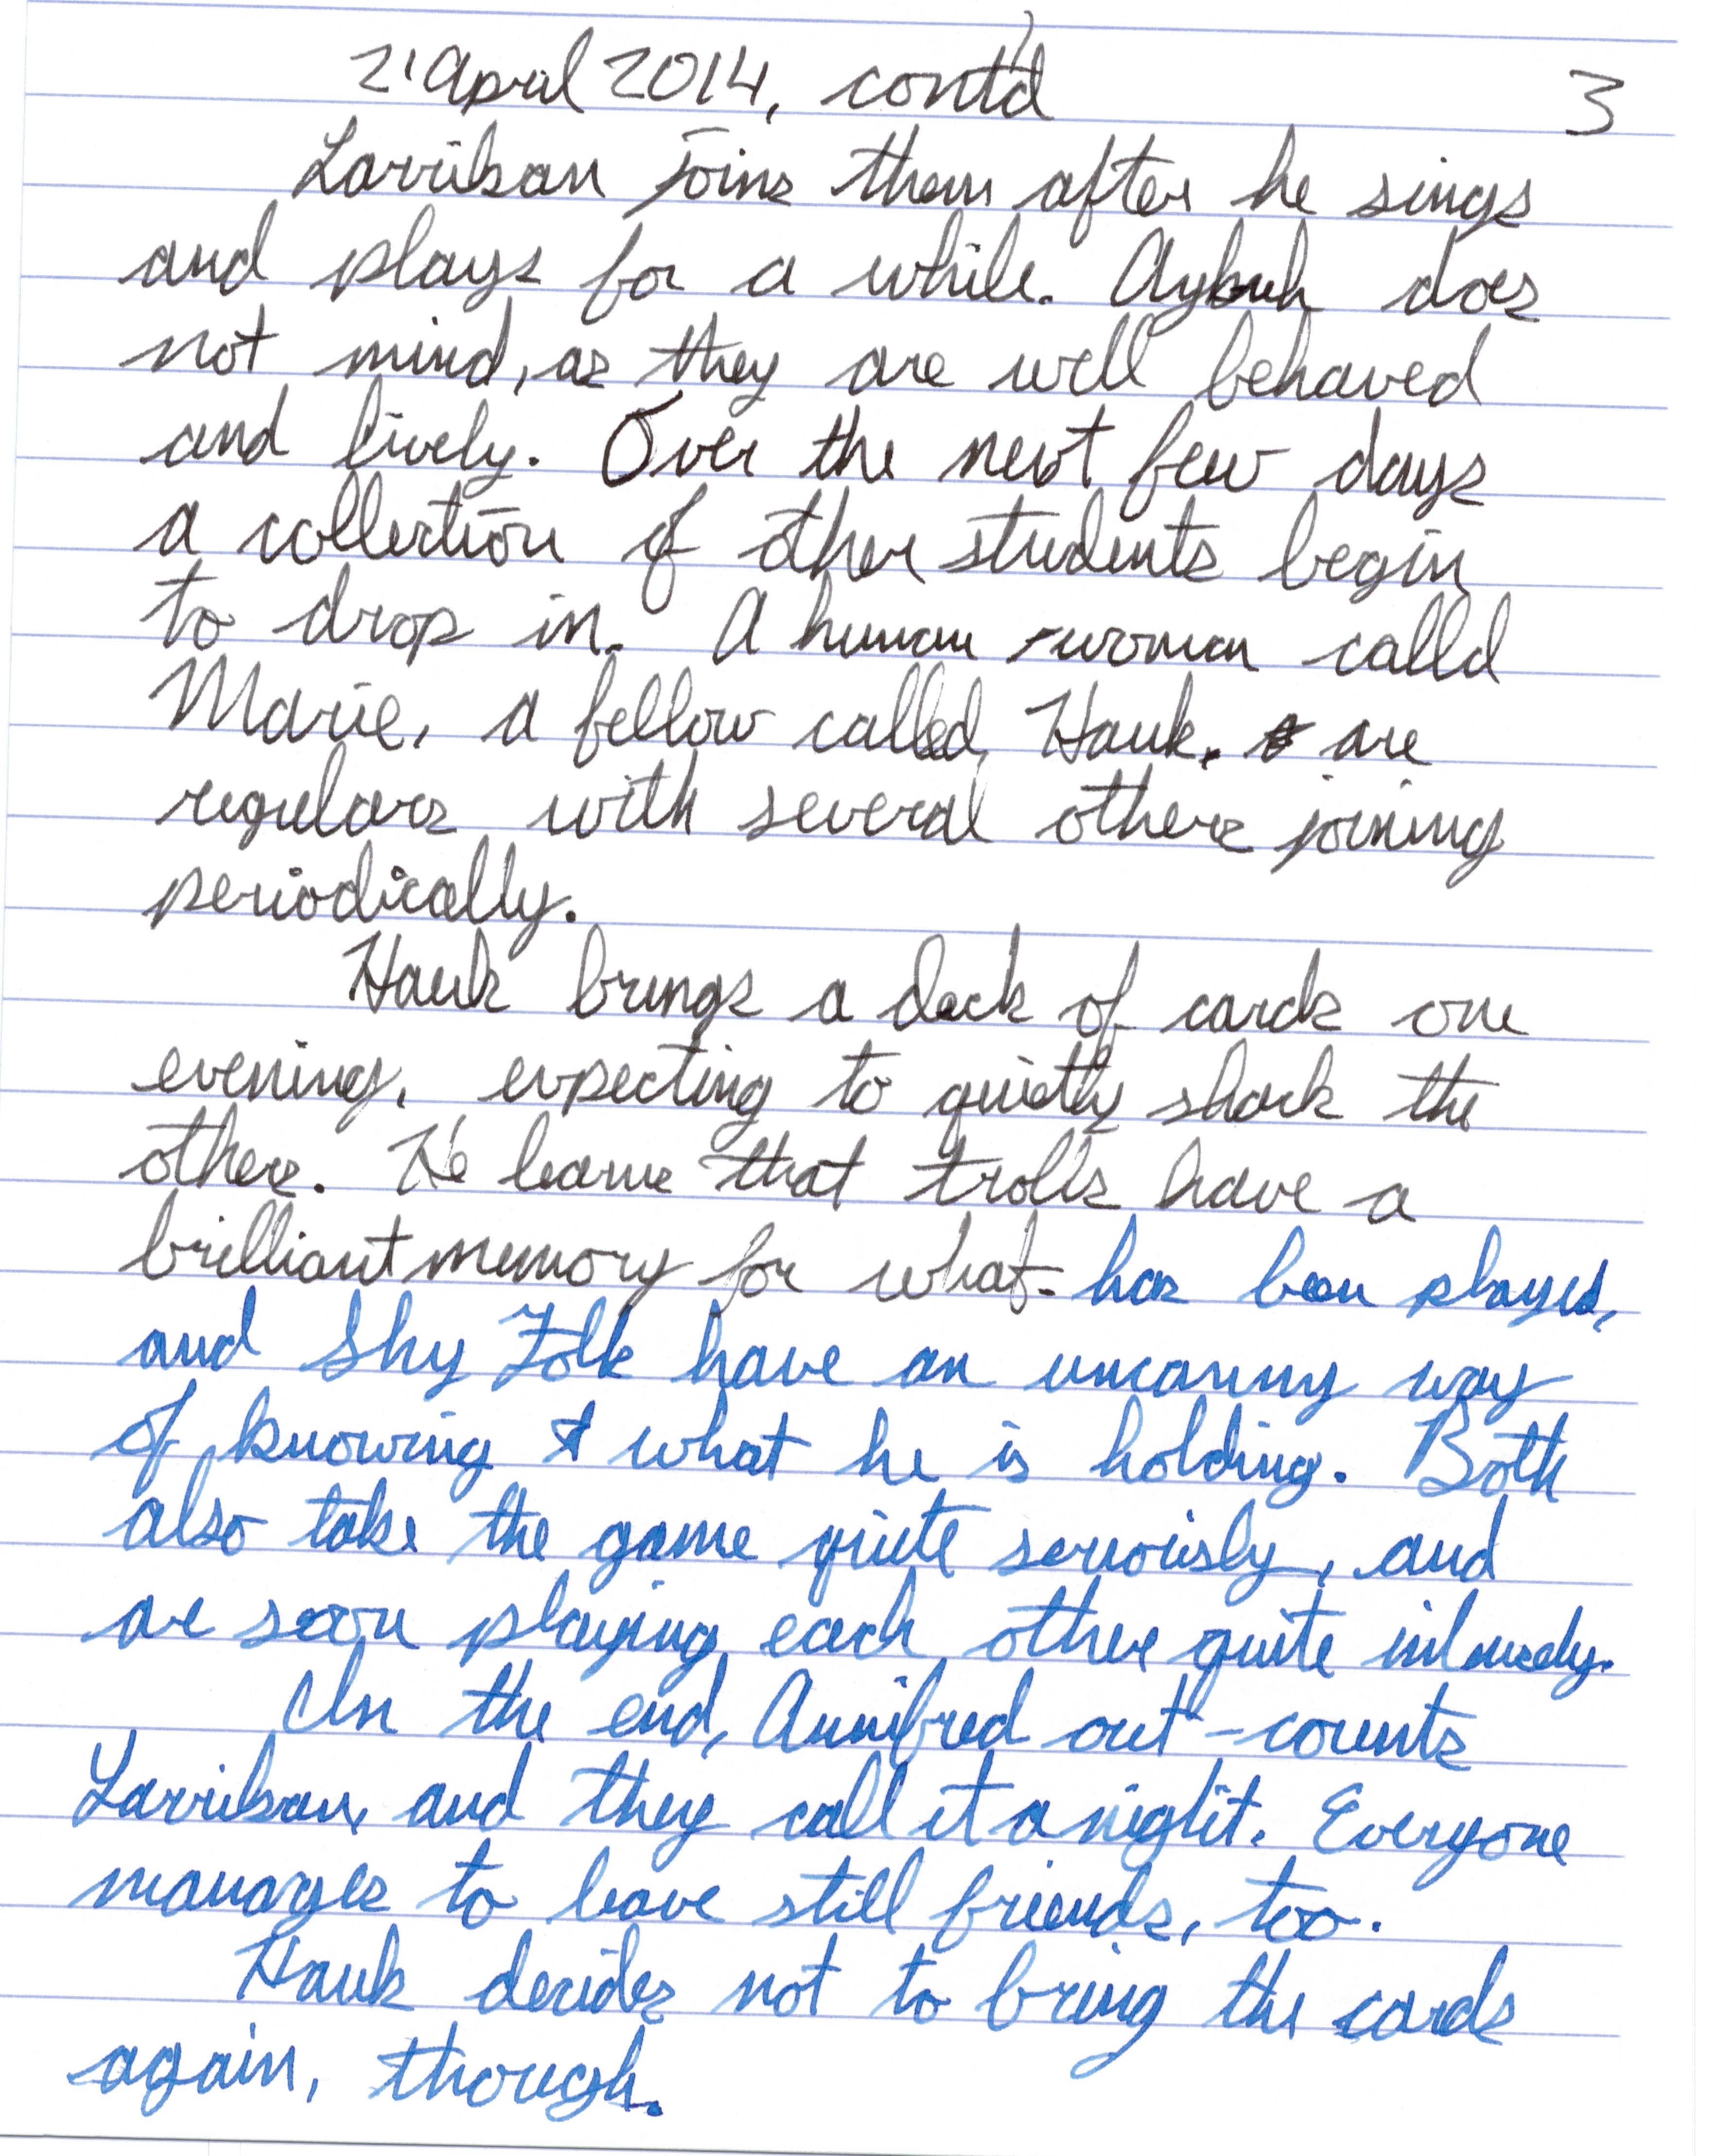 2 April 2014, cont'd 3
Larrikan joins them after he sings
and plays for a while. does
not mind, as they are well behaved
and lively. Over the next few days
a collection of other students begin
to drop in. A human woman calld
Marie, a fellow called Hauk, are
regulars with several others joining
periodically.
Hauk brings a deck of cards one
evening, expecting to quietly shark the
others. He learns that trolls have a
brilliant memory for what has been played,
and Shy Folk have an uncanny way
of knowing what he is holding. Both
also take the game quite seriously, and
are soon playing each other quite
In the end, Annifred out-counts
Larrikan, and they call it a night. Everyone
manages to leave still friends, too.
Hauk decides not to bring the cards
again, though.